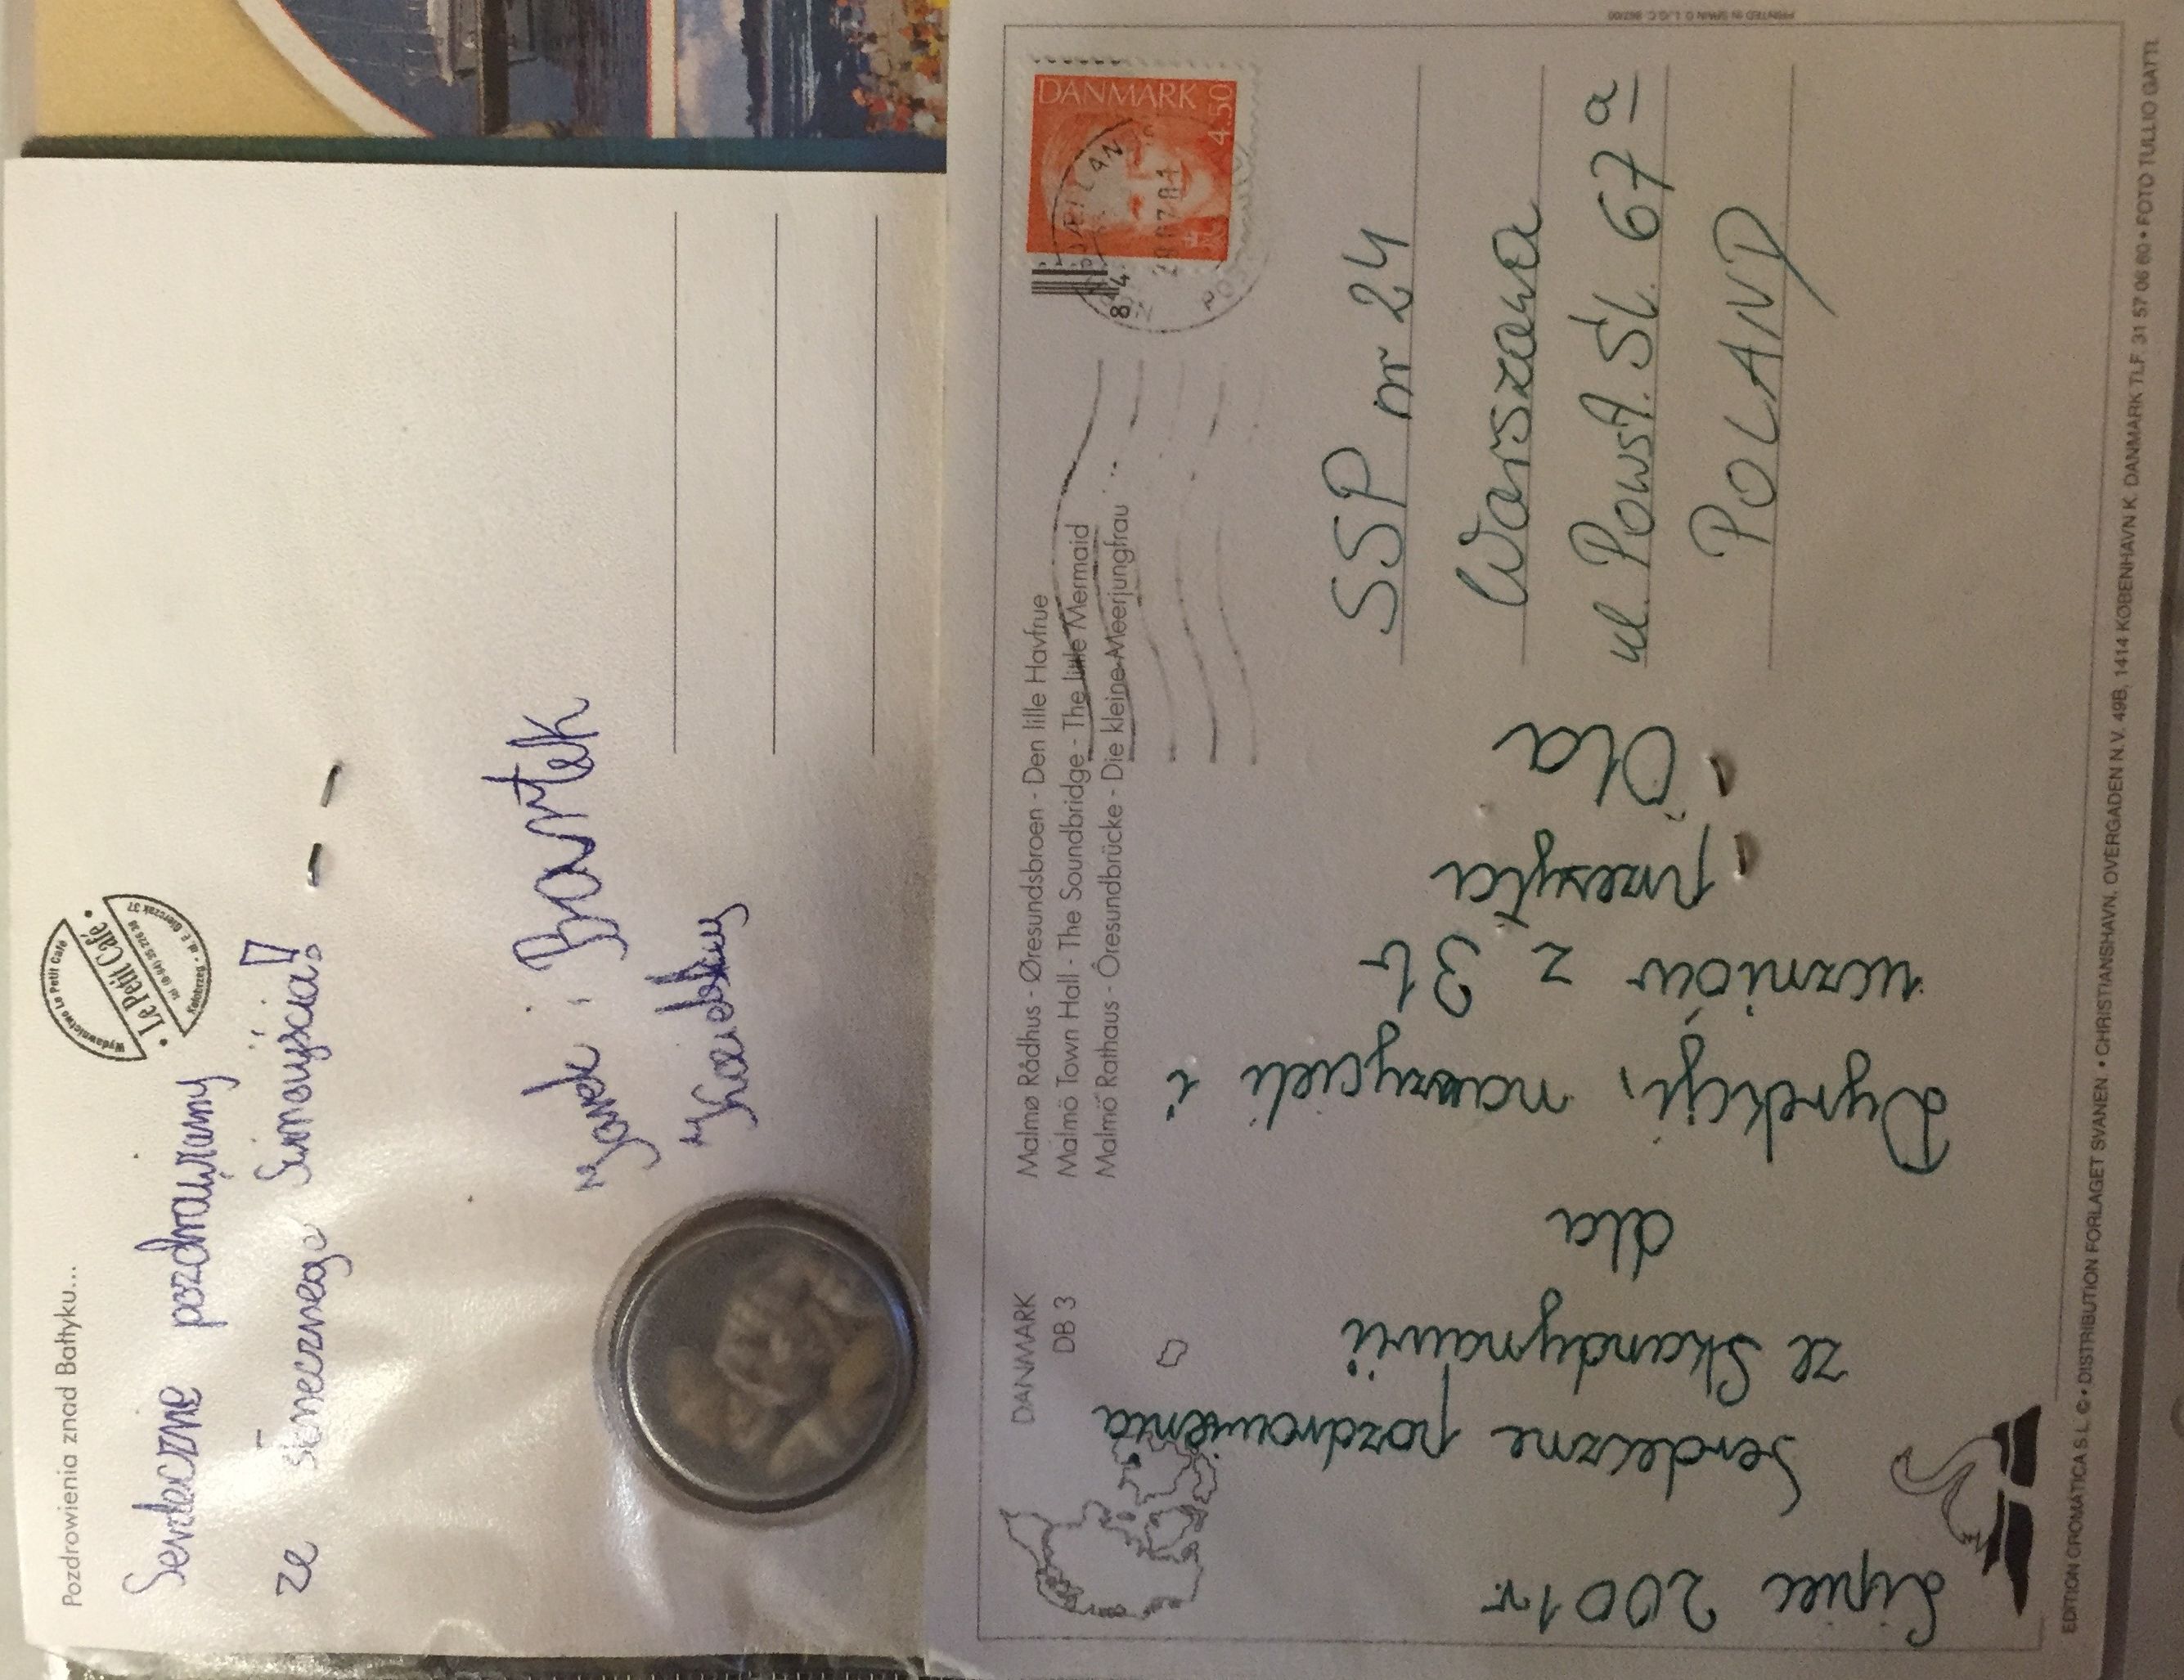 Pozdrowienia znad Bałtyku...
Wydawnictwo Le Petit Café
Le Petit Café
Kołobrzeg
Serdecznie pozdrawiamy
ze słonecznego Świnoujścia!
Janek i Bartek
PRINTED IN SPAIN
DANMARK
DB 3
Malmø Rådhus - Øresundsbroen - Den lille Havfrue
Malmö Town Hall - The Soundbridge - The little Mermaid
Malmö Rathaus - Öresundbrücke - Die kleine Meerjungfrau
DANMARK
4.50
SSP nr 24
Warszawa
ul. Powst. Śl. 67 a
POLAND
Lipiec 2001 r.
Serdeczne pozdrowienia
ze Skandynawii
dla
Dyrekcji, nauczycieli i
uczniów z 3 b
przesyła
Ola
EDITION CROMATICA S.L. © • DISTRIBUTION FORLAGET SVANEN • CHRISTIANSHAVN, OVERGADEN N.V. 49B, 1414 KØBENHAVN K. DANMARK TLF. 31 57 06 60 • FOTO TULLIO GATTI